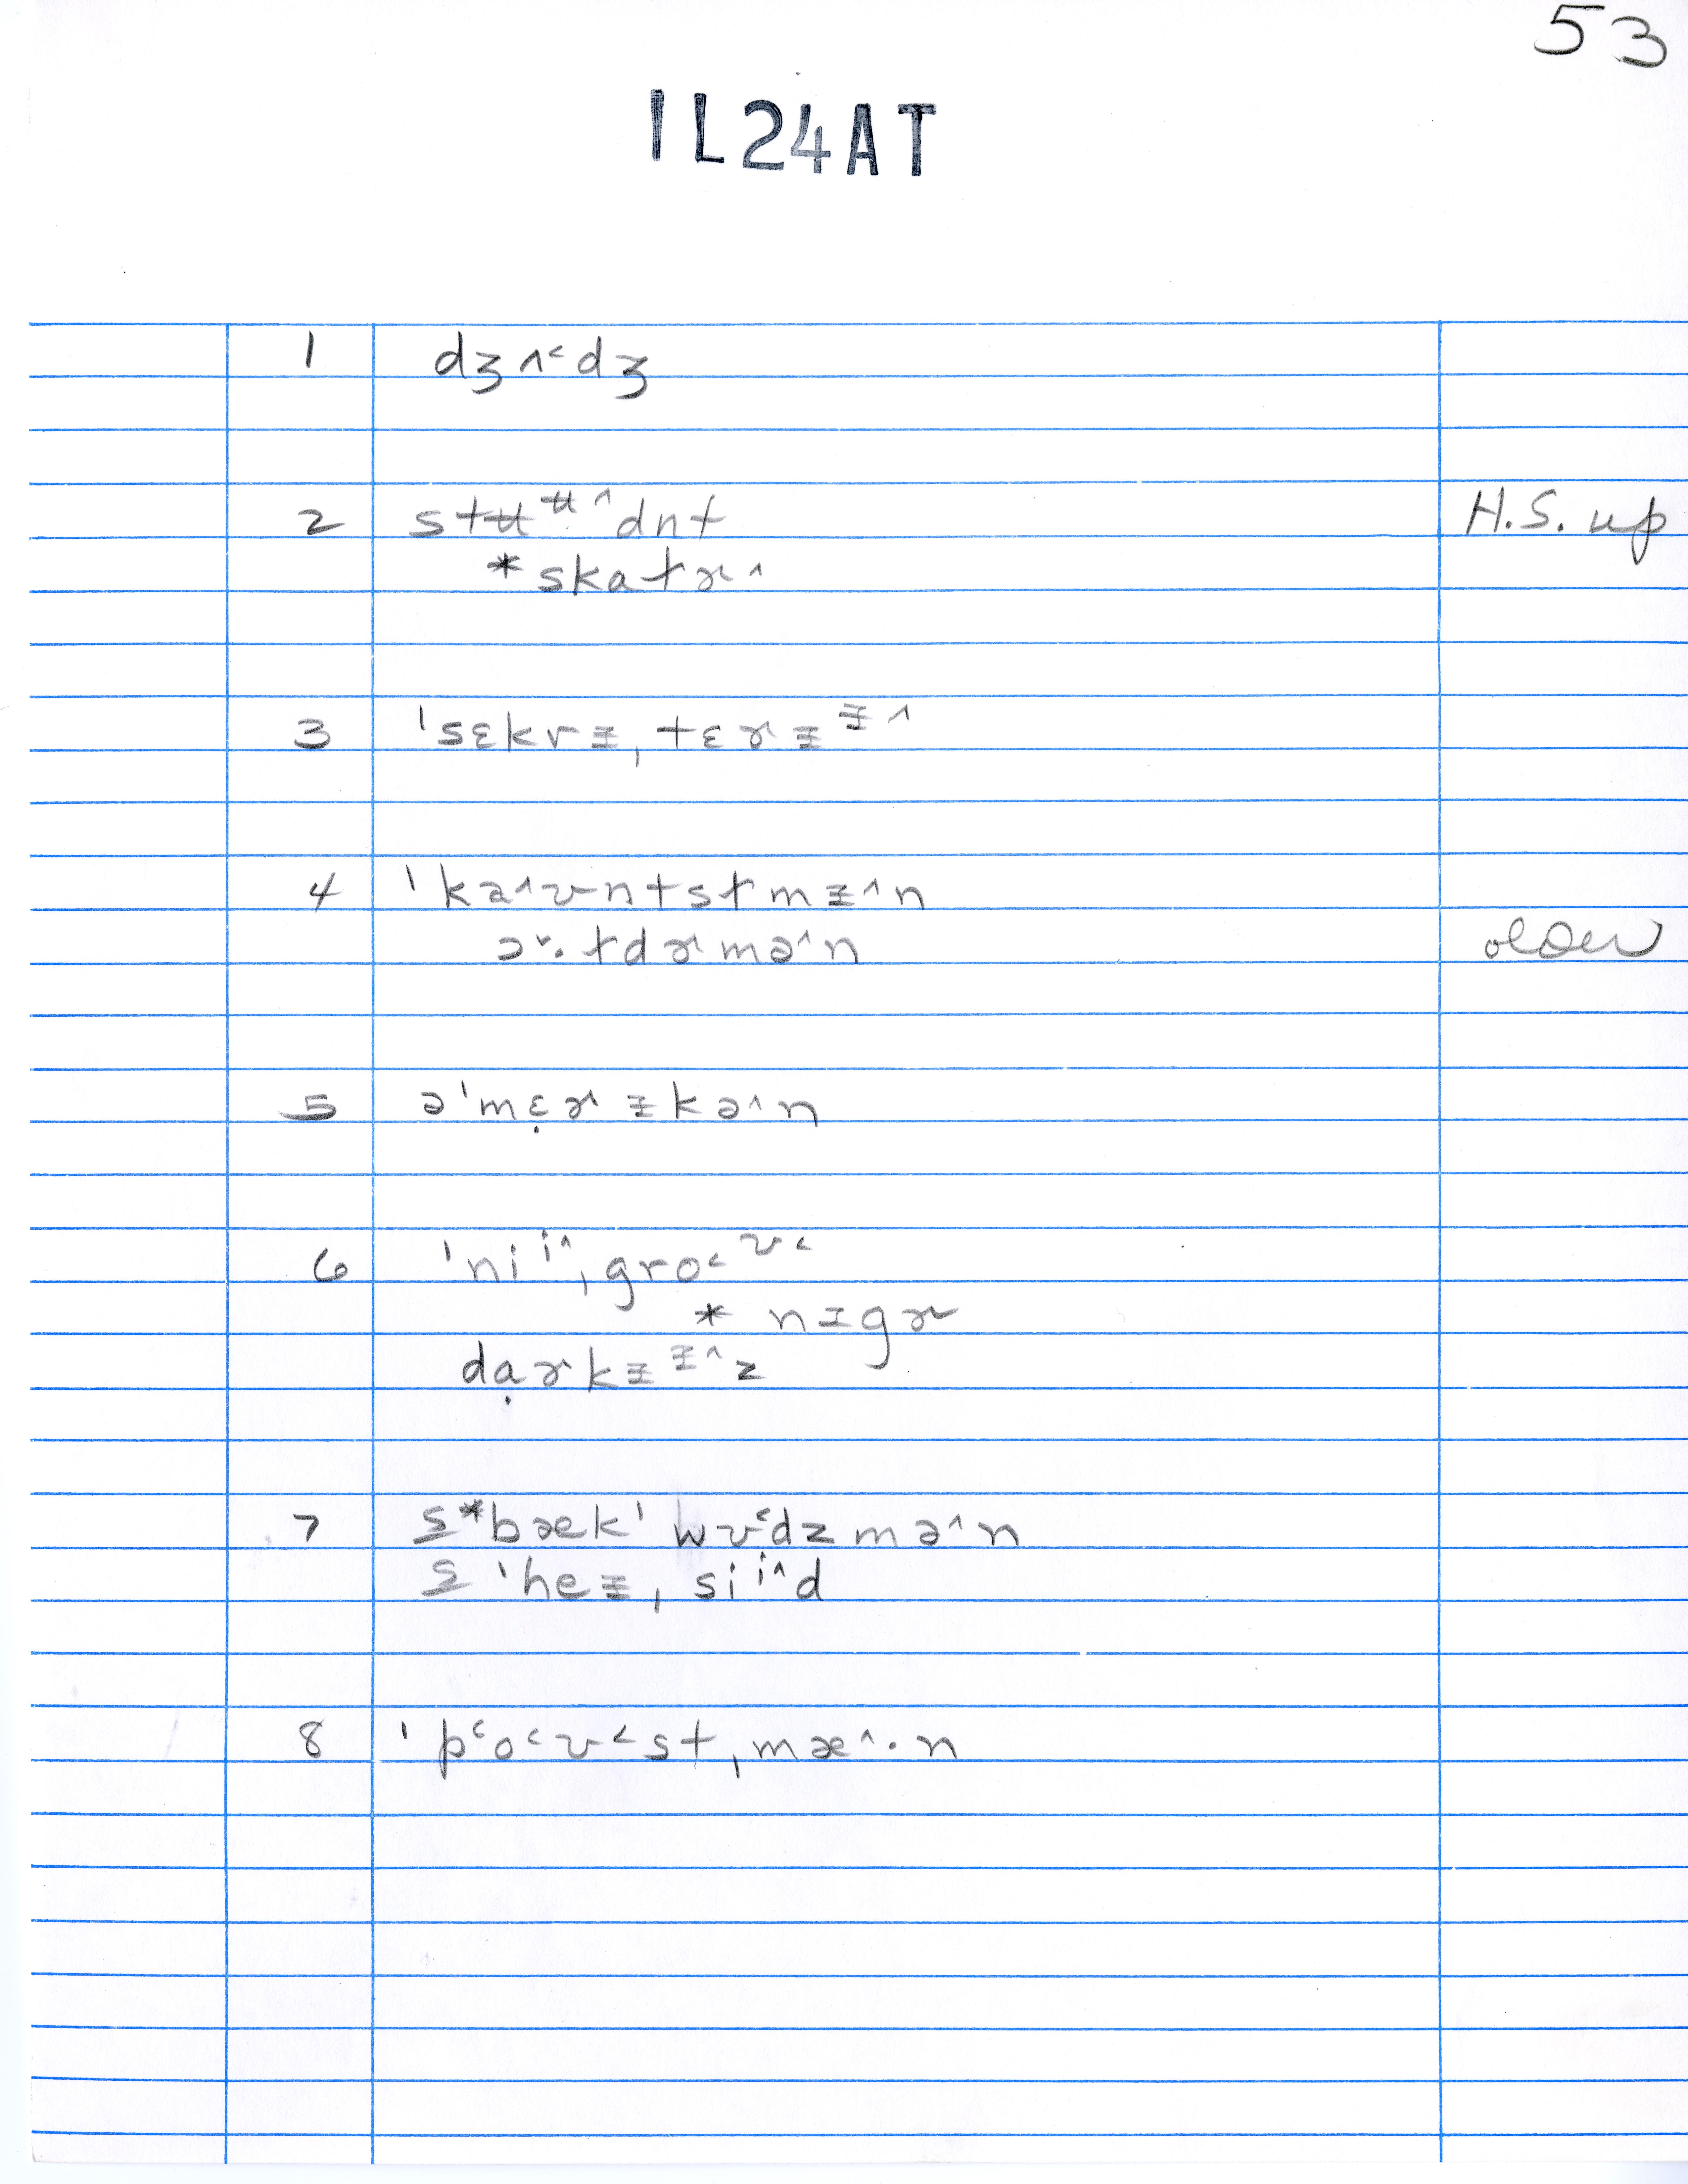 53
IL24AT
1 dʒʌ˂dʒ
2 stʉᶶ˄dnt H.S. up
*skatɚ˄
3 ˈsɛkrᵻˌtɛɚᵻᵻ˄
4 ˈka˄ʊntstmᵻ˄n
ɔ˅·tdɚmə˄n older
5 əˈmɛ̣ɚᵻkə˄n
6 ˈniⁱ˄ˌgro˂ʊ˂
*nɪgɚ
dɑ̣ɚkᵻᵻ˄z
7 S *bækˈwʊ˂dzmə˄n
S ˈheᵻˌsiⁱ˄d
8 ˈp˂o˂ʊ˂stˌmæ˄·n